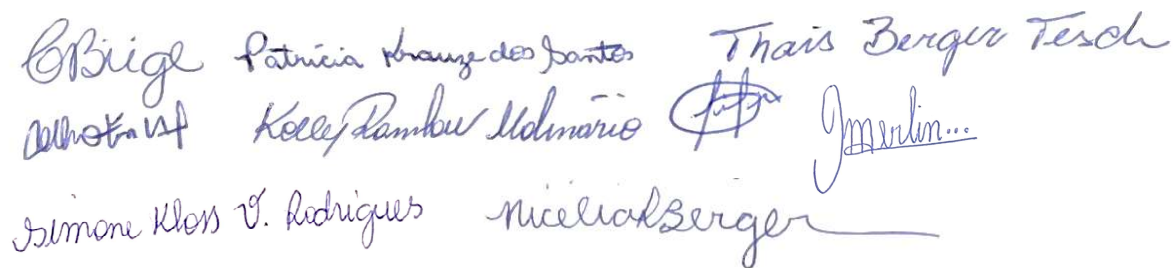 CBuge Patrícia Krauze dos Santos Thais Berger Tesch
Kelly Ramlow Molinário Jmerlin...
Simone Kloss V. Rodrigues Nicélia R Berger